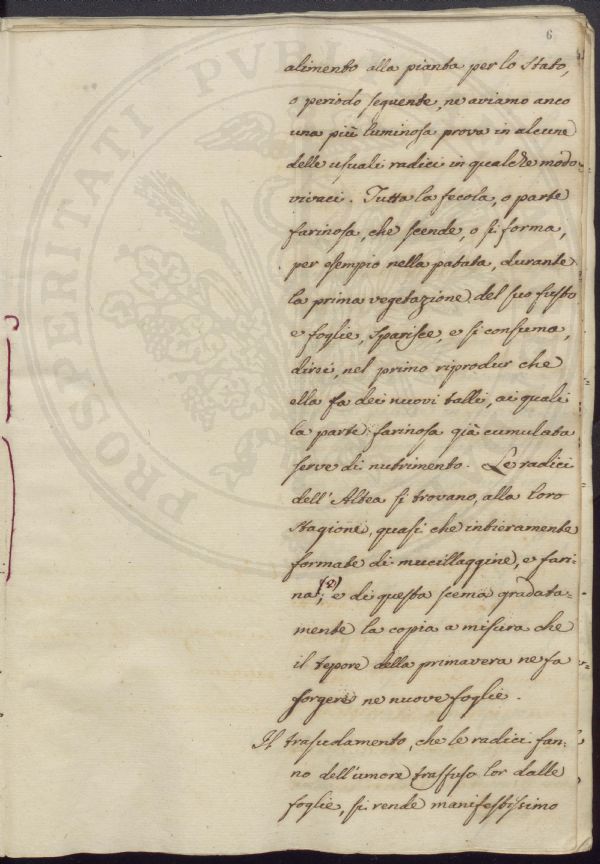 6
PROSPERITATI PVBLICAE
alimento alla pianta per lo stato,
o periodo seguente, ne aviamo anco
una più luminosa prova in alcune
delle usuali radici in qualche modo
vivaci. Tutta la fecola, o parte
farinosa, che scende, o si forma,
per esempio nella patata, durante
la prima vegetazione del suo fusto
e foglie, sparisce, e si consuma,
dirsi, nel primo riprodur che
ella fa dei nuovi talli, ai quali
la parte farinosa già cumulata
serve di nutrimento. Le radici
dell'Altea si trovano, alla loro
stagione, quasi che intieramente
formate di mucillaggine, e fari-
na (2); e di questa scema gradata-
mente la copia a misura che
il tepore della primavera ne fa
sorgere ne nuove foglie.
Il trasudamento, che le radici fan-
no dell'umore trasfuso lor dalle
foglie, si rende manifestissimo